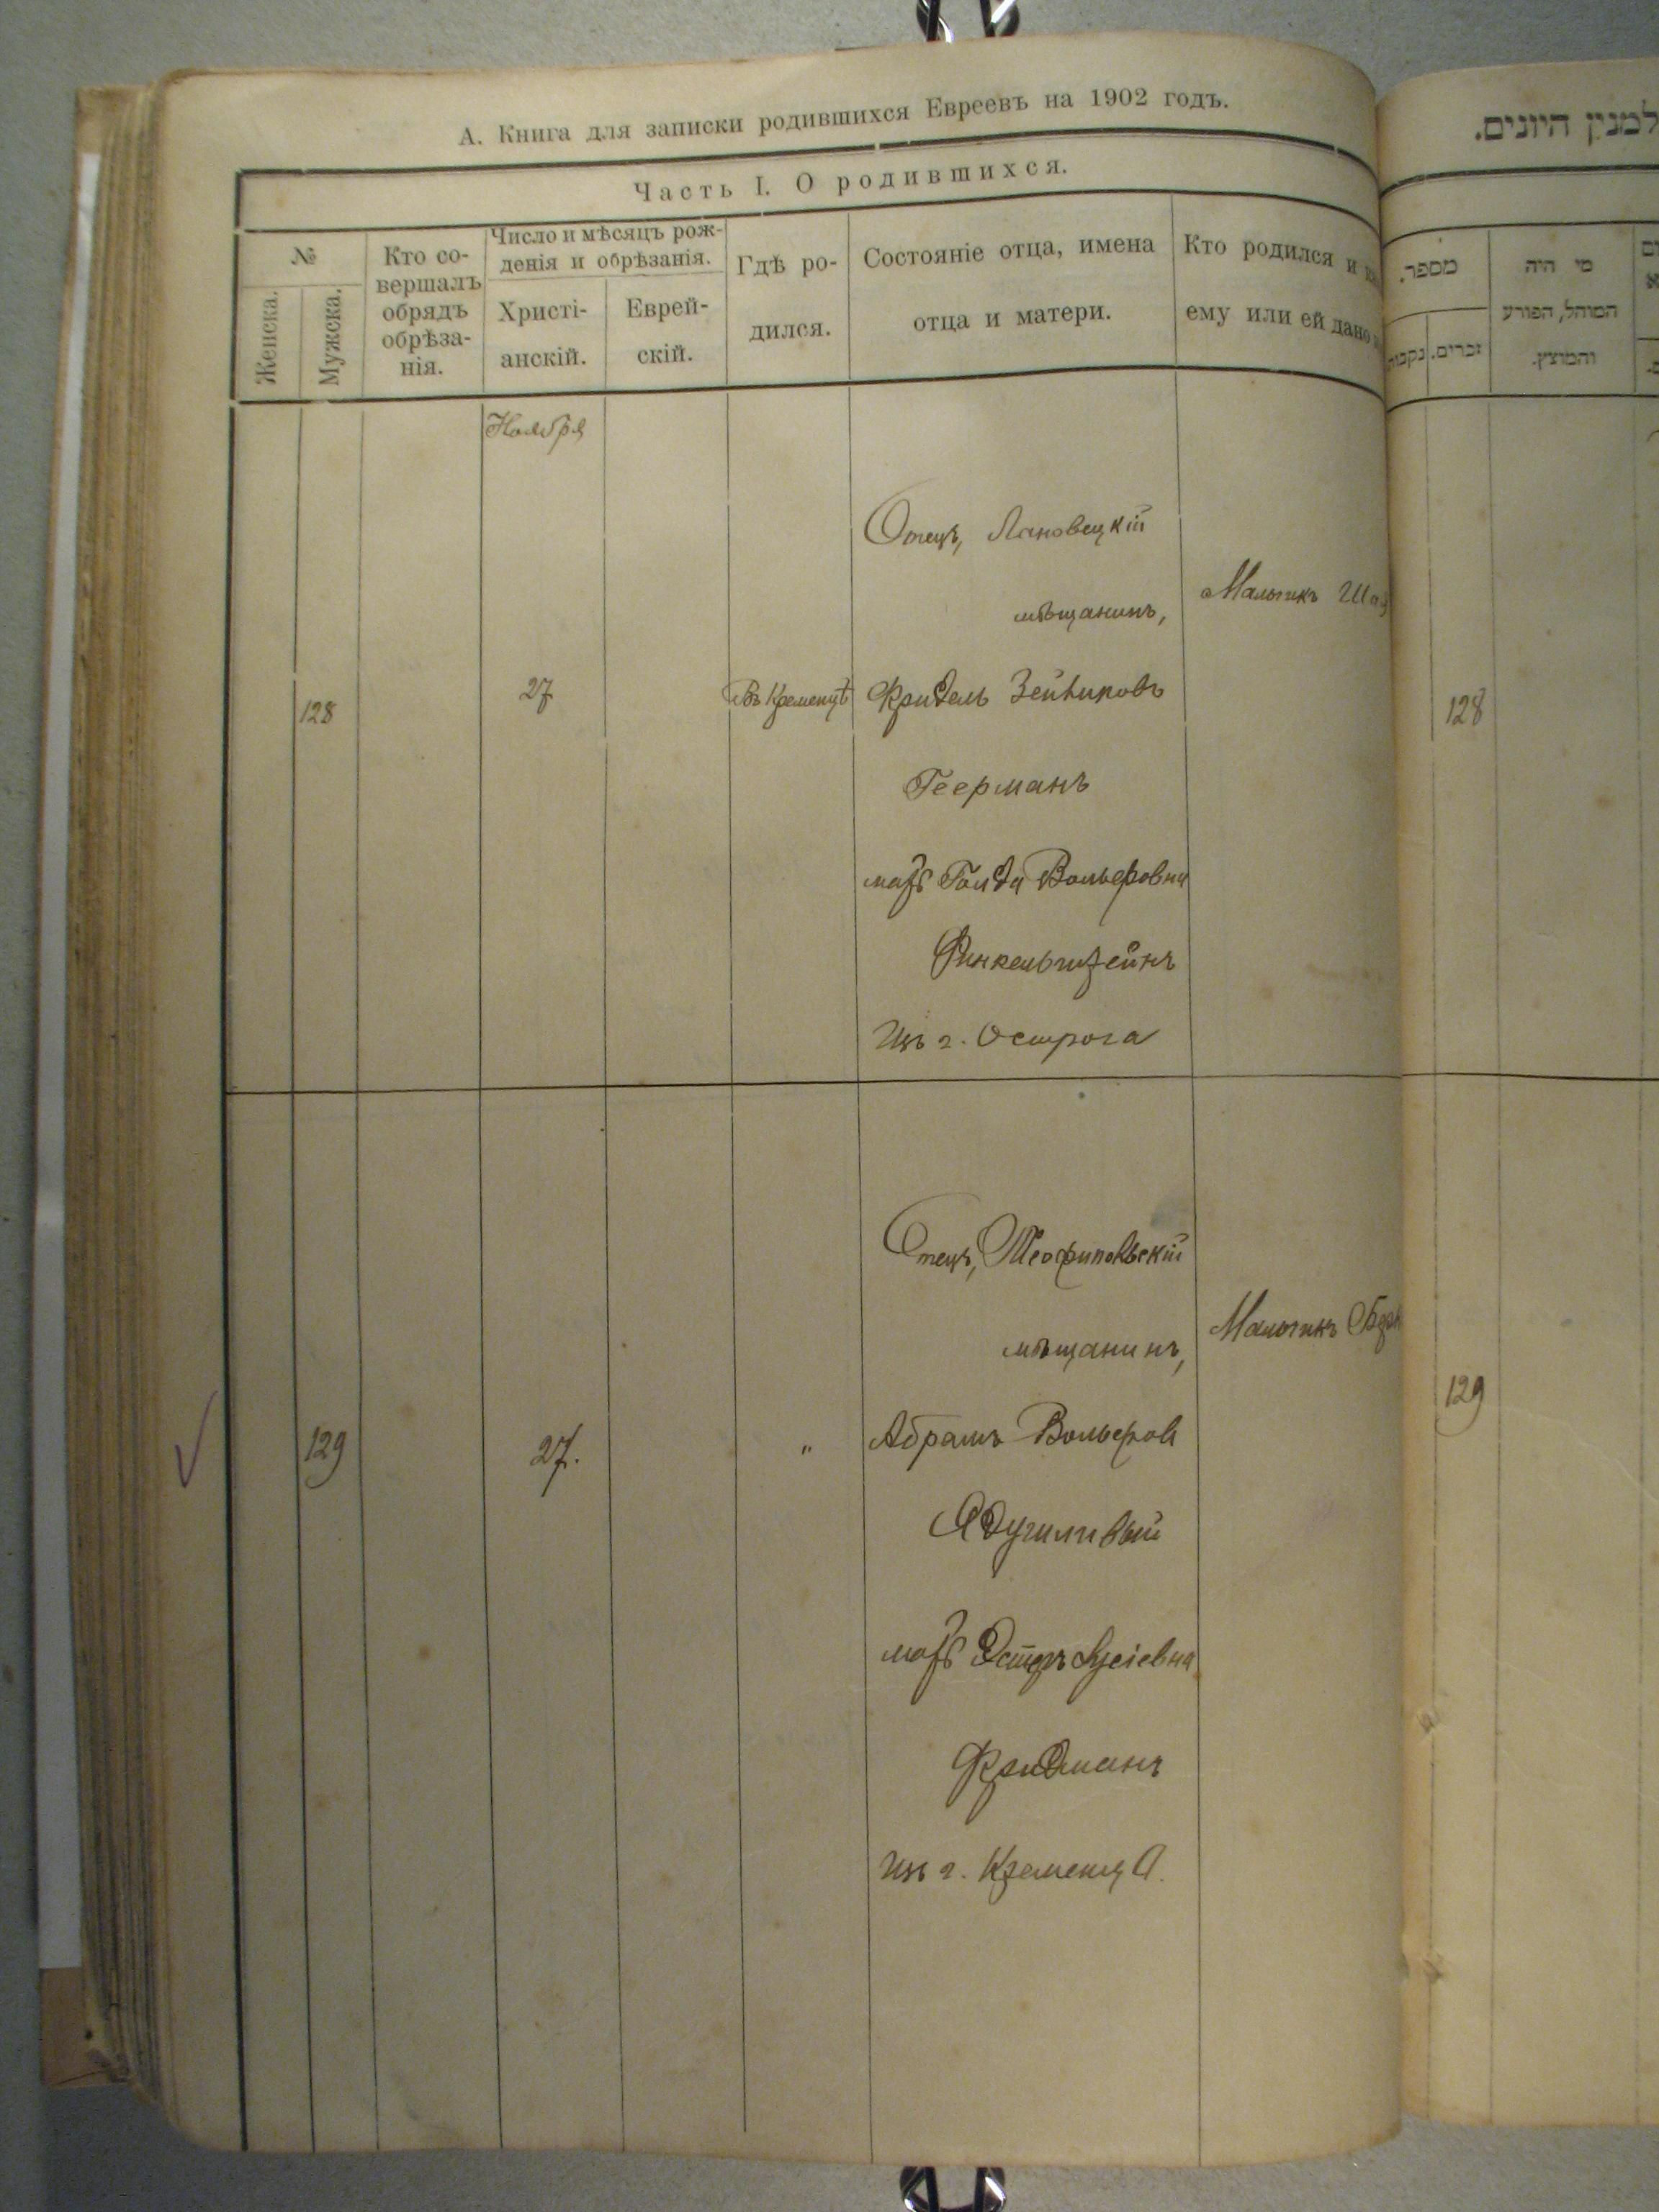 А. Книга для записки родившихся Евреевъ на 1902 годъ.
Часть I. О родившихся.
№
Женска.
Мужска.
Кто со-
вершалъ
обрядъ
обрѣза-
нія.
Число и мѣсяцъ рож-
денія и обрѣзанія.
Христі-
анскій.
Еврей-
скій.
Гдѣ ро-
дился.
Состояніе отца, имена
отца и матери.
Кто родился и
ему или ей дано
Ноября
128
27
Въ Кременцѣ
Отецъ, Лановецкій
мѣщанинъ,
Фридель Зейликовъ
Геерманъ
мать Голда Вольфовна
Финкельштейнъ
Изъ г. Острога
Мальчикъ
129
27.
"
Отецъ, Теофипольскій
мѣщанинъ,
Абрамъ Вольфовъ
мать Эстеръ
Фридманъ
Изъ г. Кременца.
Мальчикъ
למנין היונים.
מספר.
נקבות
זכרים.
מי היה
המוהל, הפורע
והמוצץ.
128
129